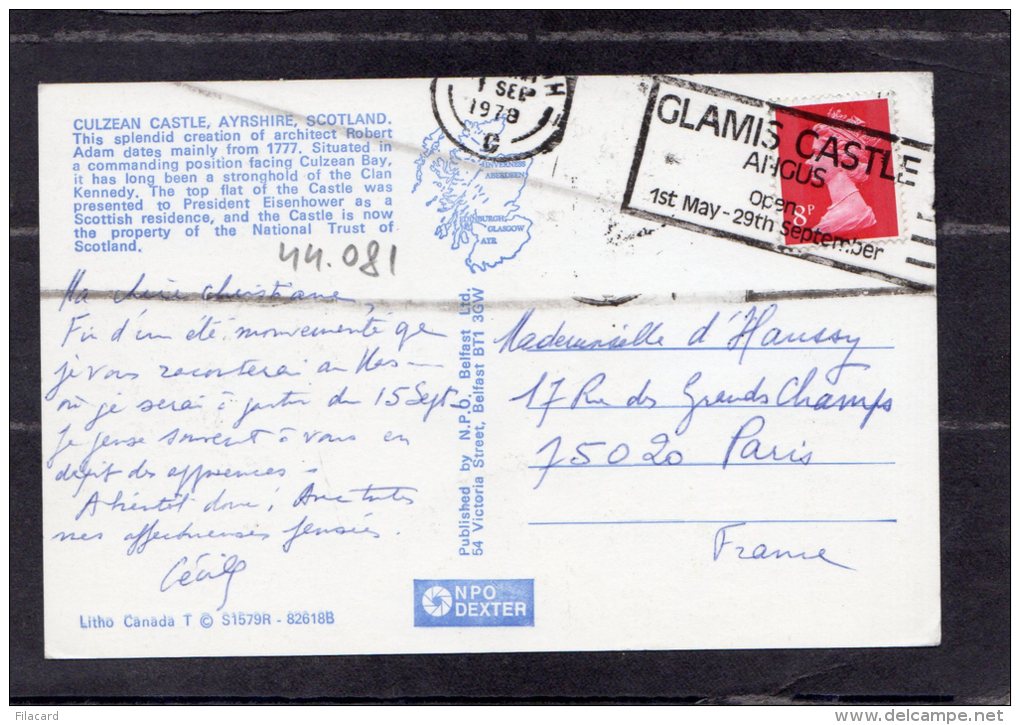 CULZEAN CASTLE, AYRSHIRE, SCOTLAND.
This splendid creation of architect Robert
Adam dates mainly from 1777. Situated in
a commanding position facing Culzean Bay,
it has long been a stronghold of the Clan
Kennedy. The top flat of the Castle was
presented to President Eisenhower as a
Scottish residence, and the Castle is now
the property of the National Trust of
Scotland.
44.081
Ma chère Christiane,
Fin d'un été mouvementé que
je vous raconterai au Mas
où je serai à partir du 15 Sept.
Je pense souvent à vous en
dépit des apparences
A bientôt donc, Avec toutes
mes affectueuses pensées.
Cécile
Litho Canada T © S1579R - 82618B
1 SEP
1978
C
INVERNESS
ABERDEEN
EDINBURGH
GLASGOW
AYR
Published by N.P.O. Belfast Ltd.,
54 Victoria Street, Belfast BT1 3GW
NPO
DEXTER
GLAMIS CASTLE
ANGUS
Open
1st May - 29th September
8P
Mademoiselle d'Haussy
17 Rue des Grands Champs
75020 Paris
France
Filacard
www.delcampe.net